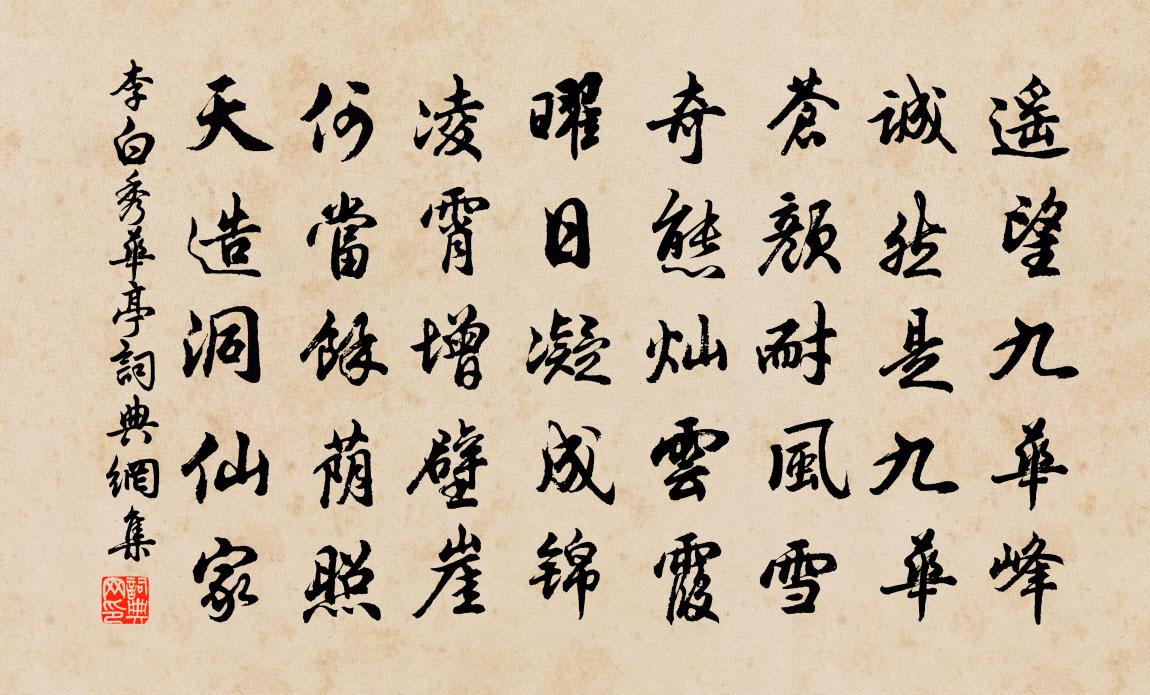 遥望九華峰
誠然是九華
蒼顔耐風雪
奇態灿雲霞
曜日凝成锦
凌霄增壁崖
何當餘荫照
天造洞仙家
李白秀華亭詞典網集
詞典网印